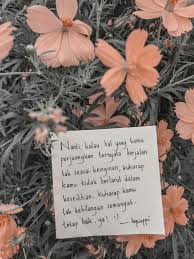 Nanti, kalau hal yang kamu
perjuangkan ternyata berjalan
tak sesuai keinginan, kuharap
kamu tidak berlarut dalam
kesedihan. kuharap kamu
tak kehilangan semangat.
tetap baik, ya! :)